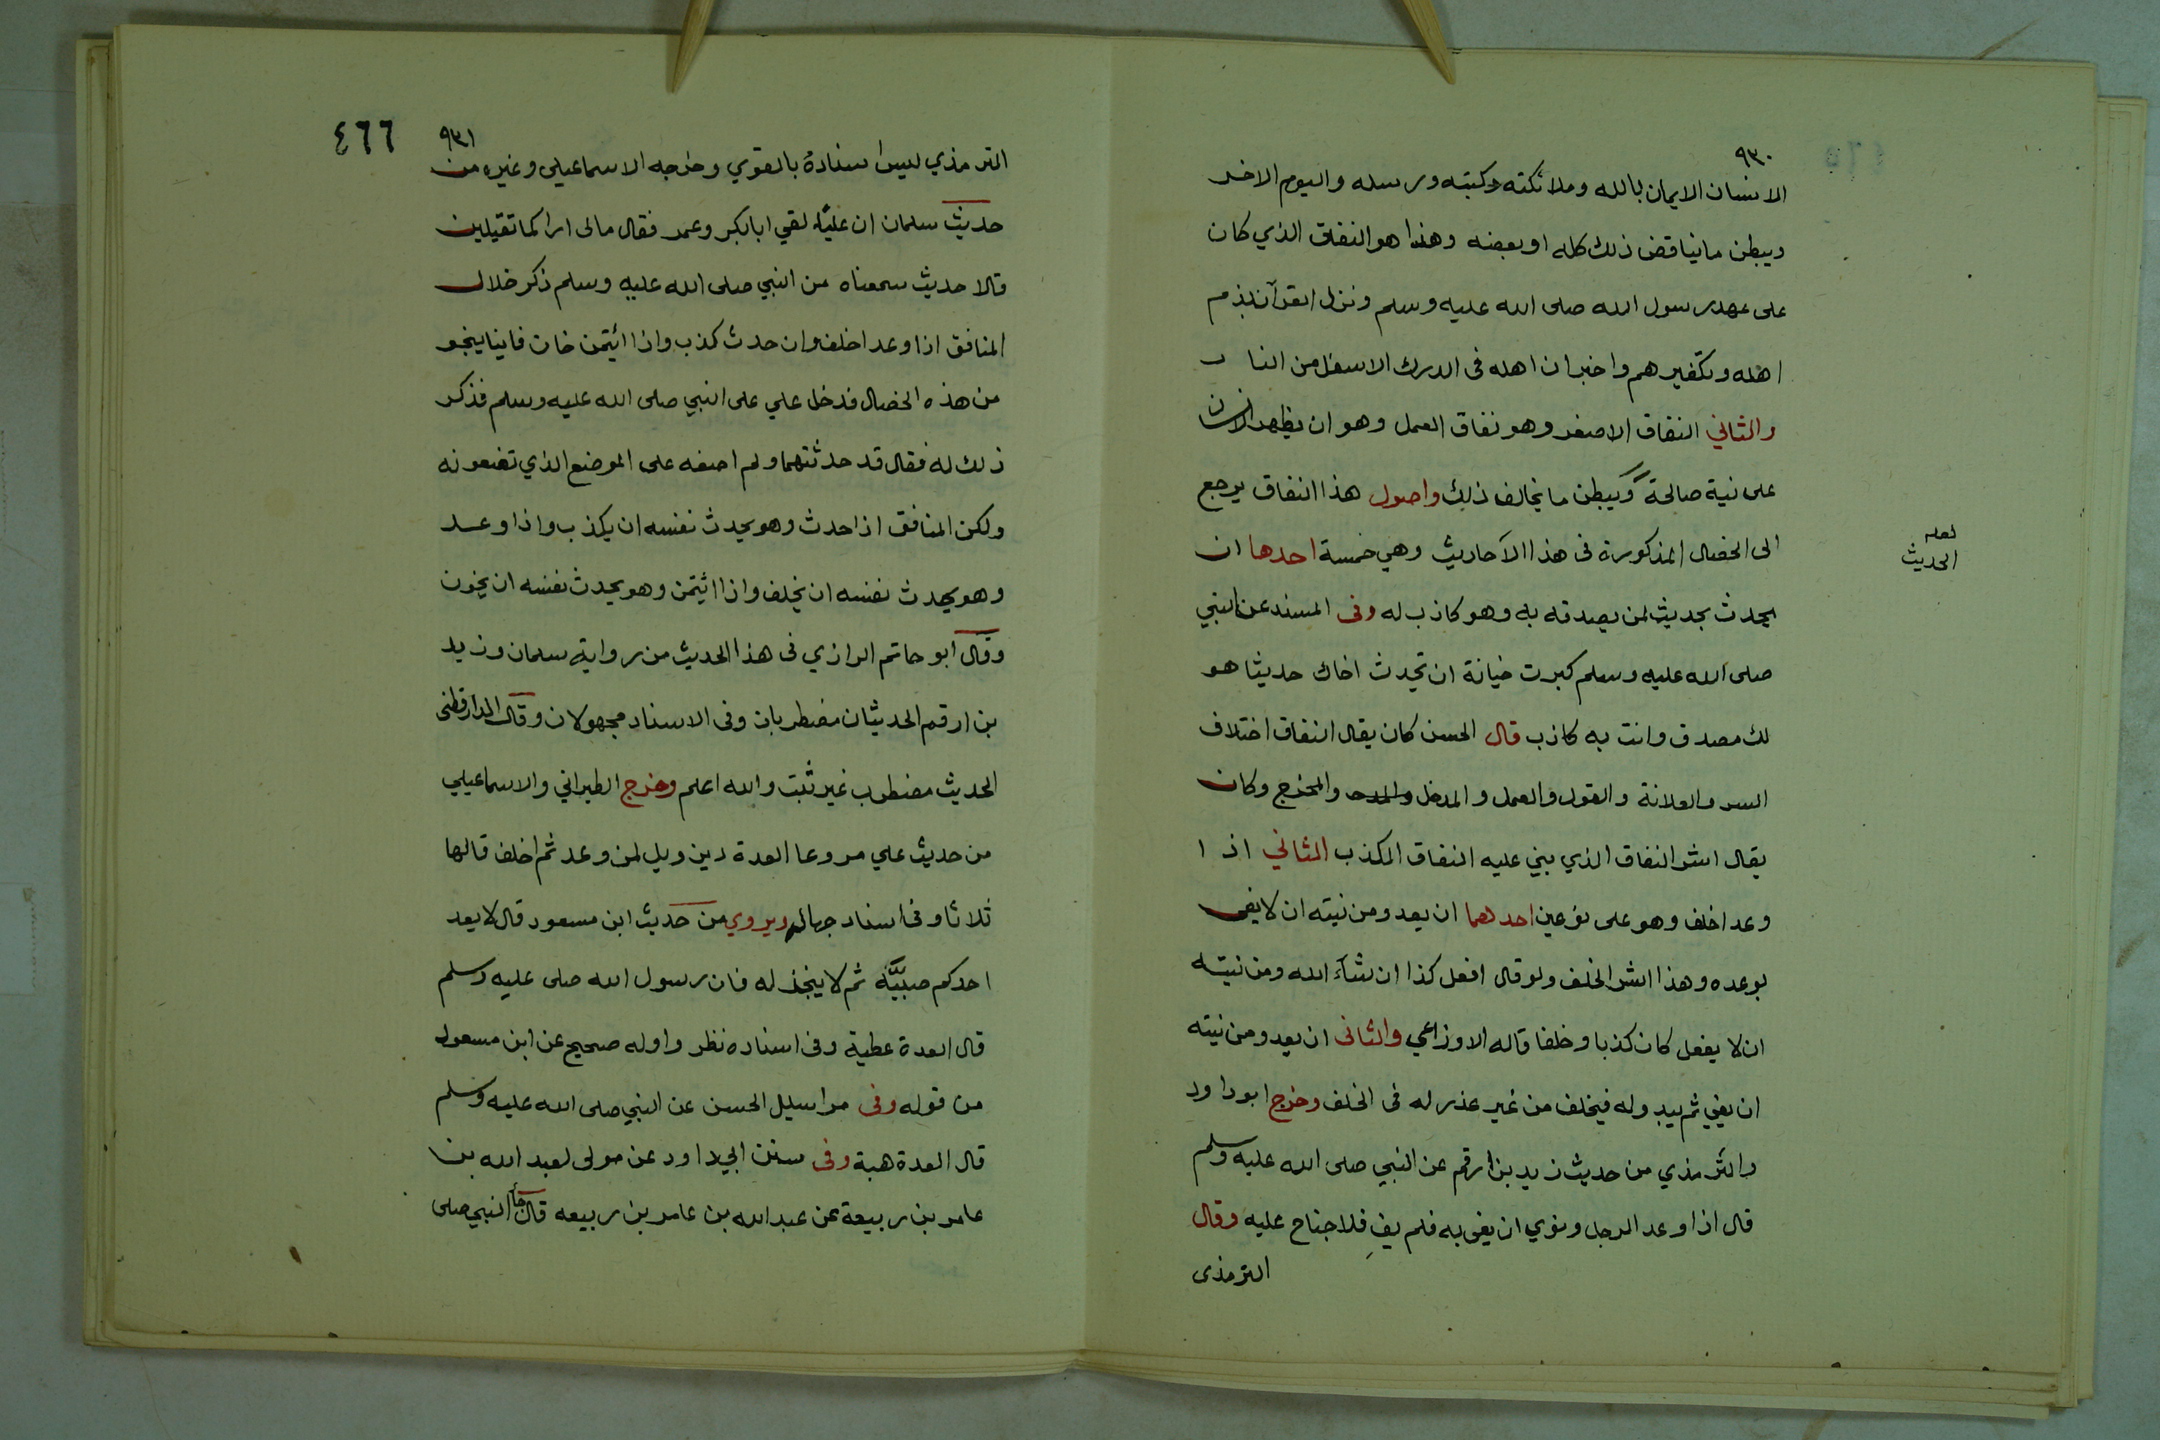 ٩٣٠
الانسان الايمان بالله وملائكته وكتبه ورسله واليوم الاخر
ويبطن ما يناقض ذلك كله او بعضه وهذا هو النفاق الذي كان
على عهد رسول الله صلى الله عليه وسلم ونزل القرآن بذم
اهله وتكفيرهم واخبر ان اهله فى الدرك الاسفل من النار
والثاني النفاق الاصغر وهو نفاق العمل وهو ان يظهر الانسان
على نية صالحة ويبطن ما يخالف ذلك واصول هذا النفاق يرجع
الى الخصال المذكورة فى هذا الآحاديث وهي خمسة احدها ان
لعله
الحديث
يحدث بحديث لمن يصدقه به وهو كاذب له وفى المسند عن النبي
صلى الله عليه وسلم كبرت خيانة ان تحدث اخاك حديثا هو
لك مصدق وانت به كاذب قال الحسن كان يقال النفاق اختلاف
السر والعلانة والقول والعمل والمدخل والمدحـ والمخرج وكان
يقال اس النفاق الذي بني عليه النفاق الكذب الثاني اذا
وعد اخلف وهو على نوعين احدهما ان يعد ومن نيته ان لا يفى
بوعده وهذا اشر الخلف ولو قال افعل كذا ان شآء الله ومن نيته
ان لا يفعل كان كذبا وخلفا قاله الاوزاعي والثانى ان يعد ومن نيته
ان يفي ثم يبدو له فيخلف من غير عذر له فى الخلف وخرج ابوداود
والترمذي من حديث زيد بن ارقم عن النبي صلى الله عليه وسلم
قال اذا وعد الرجل ونوي ان يفى به فلم يفِ فلا جناح عليه وقال
الترمذى
٩٣١
٤٦٦
الترمذي ليس اسنادهُ بالقوي وخرجه الاسماعيلى وغيره من
حديث سلمان ان عليًا لقي ابا بكر وعمر فقال مالى اراكما ثقيلين
قالا حديث سمعناه من النبي صلى الله عليه وسلم ذكر خلال
المنافق اذا وعد اخلف وان حدث كذب واذا ائتمن خان فاينا ينجو
من هذه الخصال فدخل علي على النبي صلى الله عليه وسلم فذكر
ذلك له فقال قد حدثتهما ولم اضعه على الموضع الذي تضعونه
ولكن المنافق اذا حدث وهو يحدث نفسه ان يكذب واذا وعد
وهو يحدث نفسه ان يخلف واذا ائتمن وهو يحدث نفسه ان يخون
وقال ابو حاتم الرازي فى هذا الحديث من رواية سلمان وزيد
بن ارقم الحديثان مضطربان وفى الاسناد مجهولان وقال الدارقطنى
الحديث مضطرب غير ثبت والله اعلم وخرج الطبراني والاسماعيلي
من حديث علي مروعا العدة دين ويل لمن وعد ثم اخلف قالها
ثلاثا وفى اسناد جهاله ويروي من حديث ابن مسعود قال لا يعد
احدكم صبيَّه ثم لا ينجز له فان رسول الله صلى عليه وسلم
قال العدة عطية وفى اسناده نظر واوله صحيح عن ابن مسعود
من قوله وفى مراسيل الحسن عن النبي صلى الله عليه وسلم
قال العدة هبة وفى سنن ابي داود عن مولى لعبد الله بن
عامر بن ربيعة عن عبد الله بن عامر بن ربيعه قال جأ النبي صلى